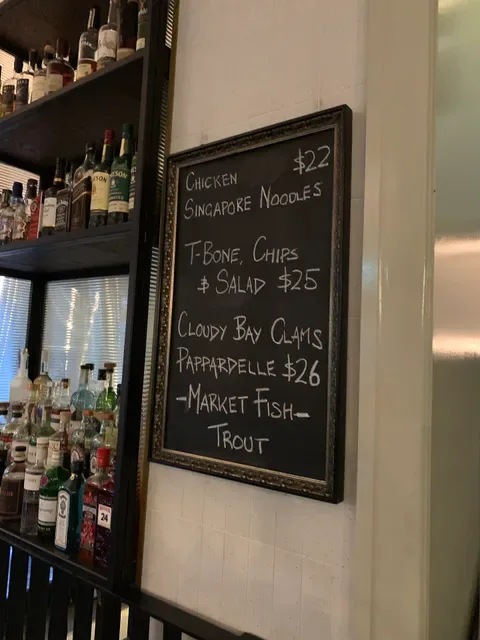 CHICKEN $22
SINGAPORE NOODLES
T-BONE, CHIPS
& SALAD $25
CLOUDY BAY CLAMS
PAPPARDELLE $26
-MARKET FISH-
TROUT
24